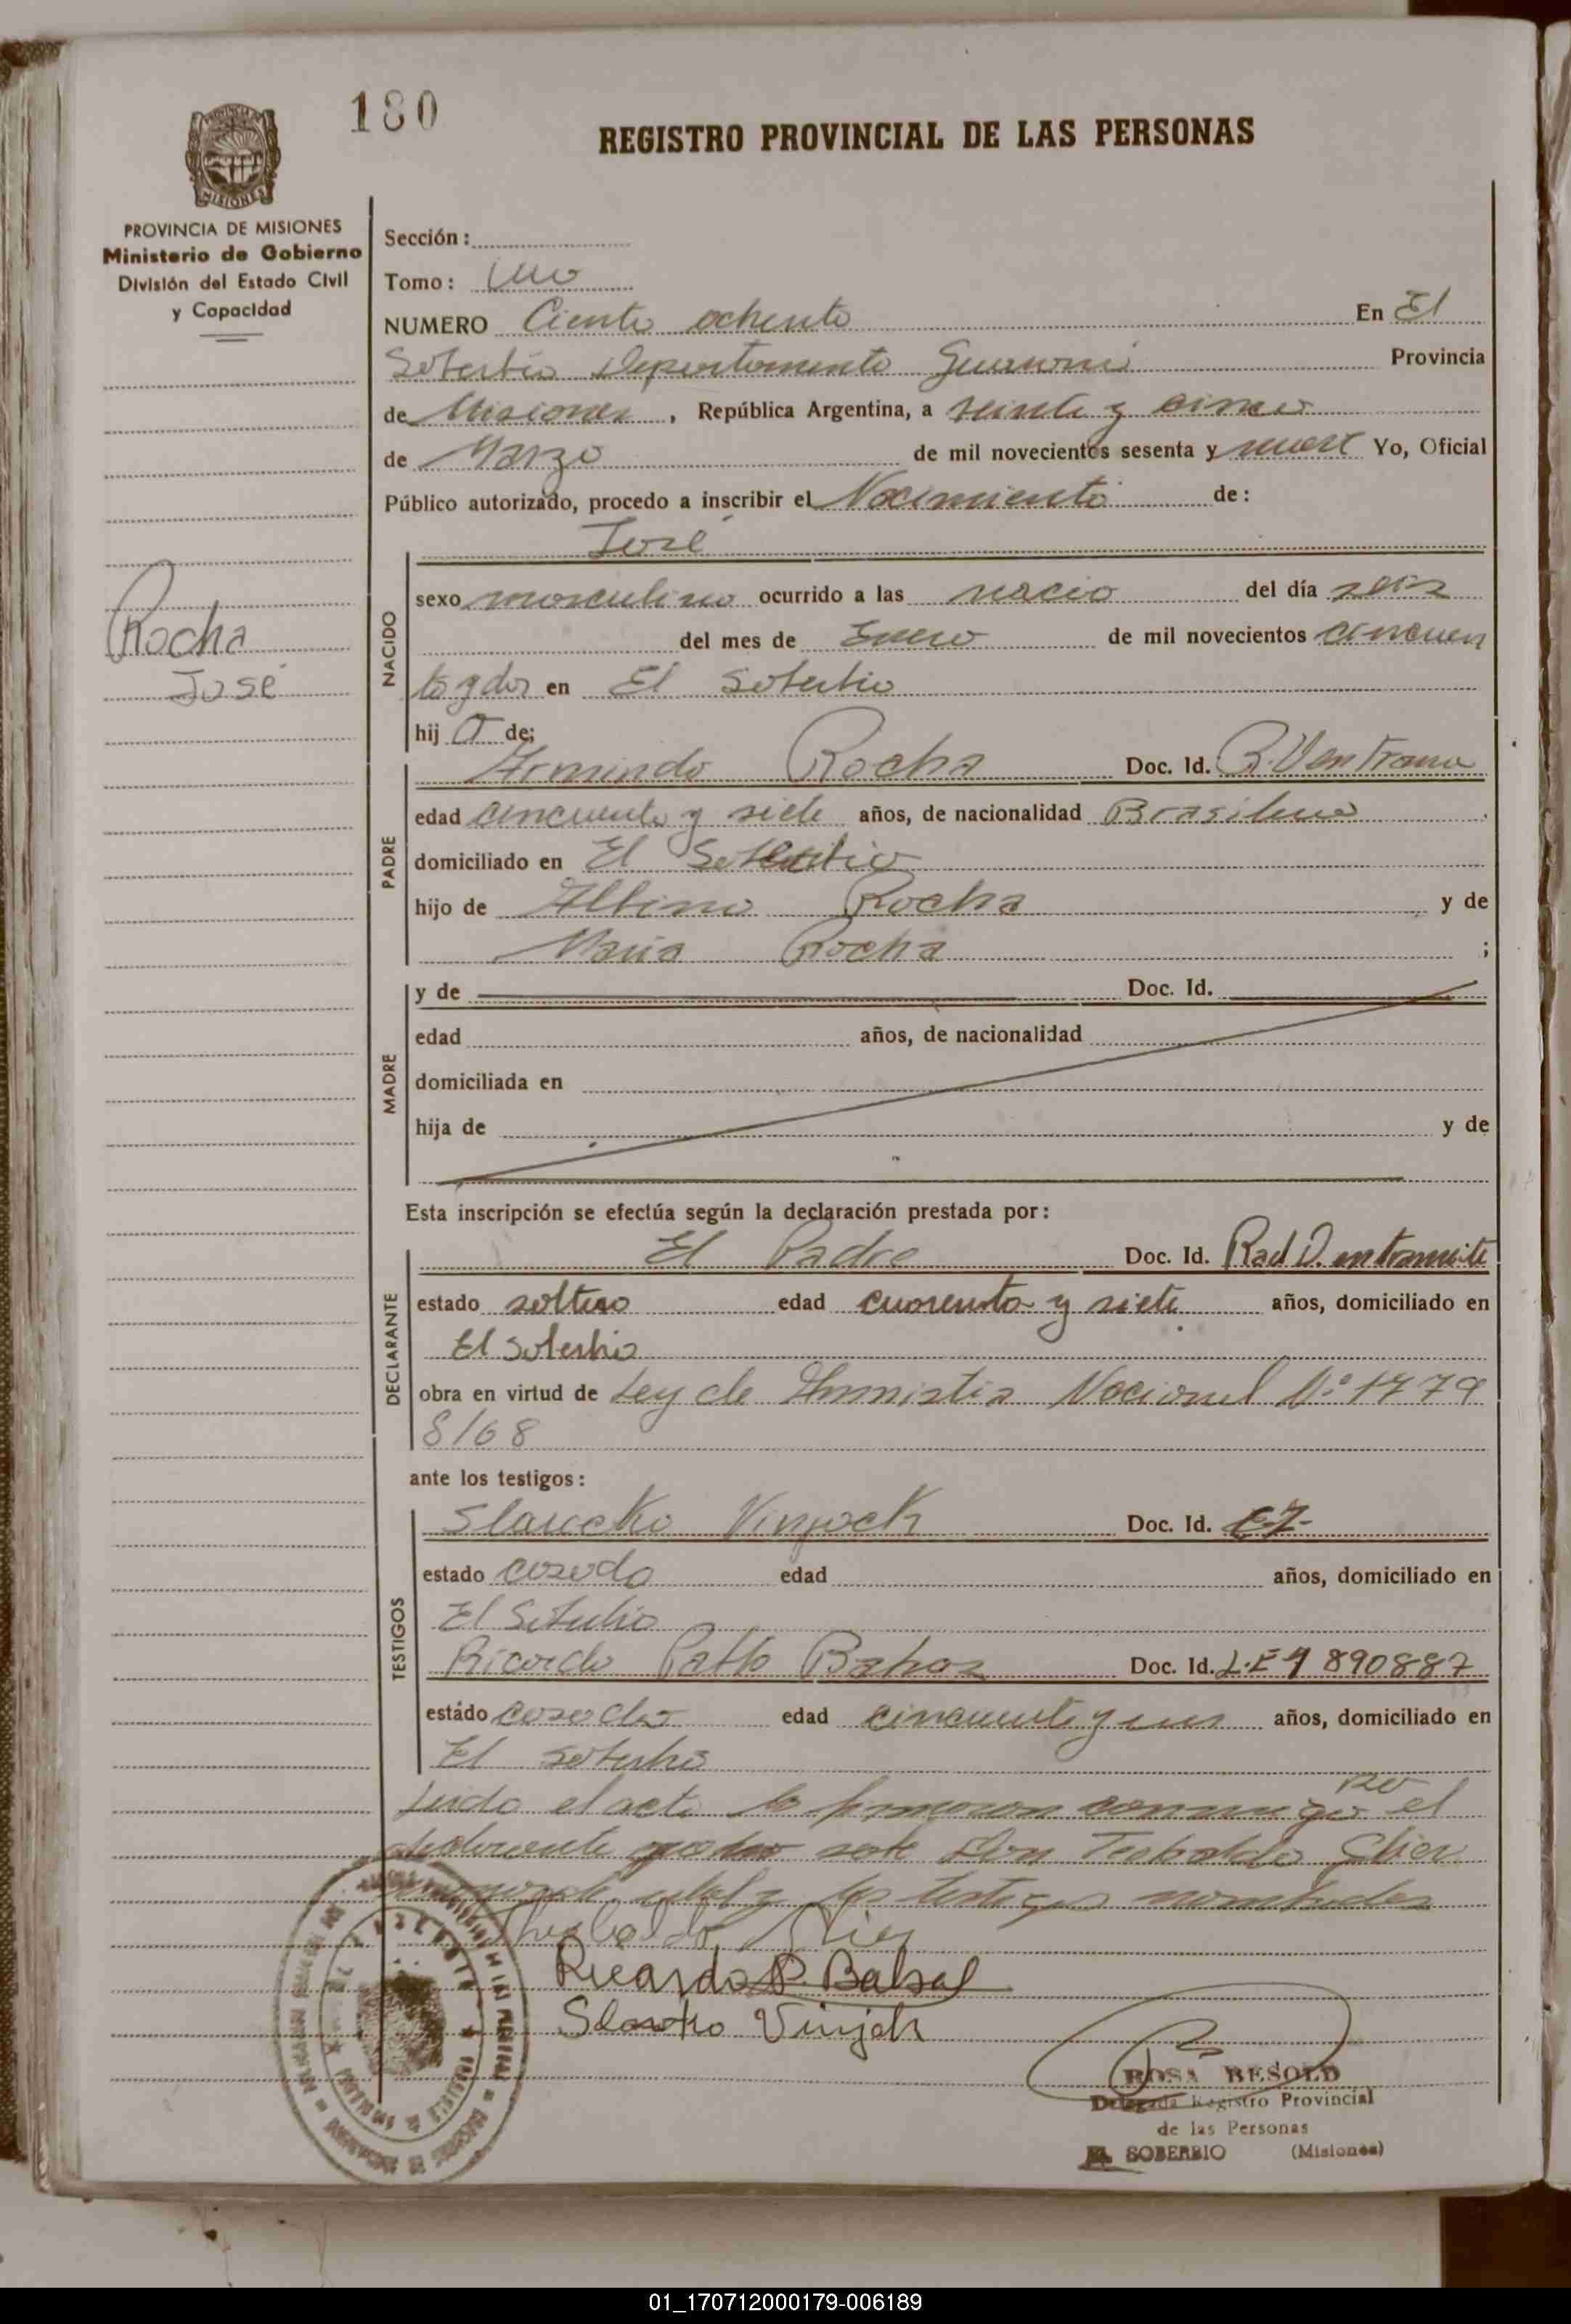 180
REGISTRO PROVINCIAL DE LAS PERSONAS
PROVINCIA DE
MISIONES
PROVINCIA DE MISIONES
Ministerio de Gobierno
División del Estado Civil
y Capacidad
Rocha
José
Sección:
Tomo: Uno
NUMERO Ciento ochenta En El
Soberbio Departamento Guarani Provincia
de Misiones, República Argentina, a veinte y cinco
de Marzo de mil novecientos sesenta y nueve Yo, Oficial
Público autorizado, procedo a inscribir el Nacimiento de:
José
NACIDO
sexo masculino ocurrido a las nacio del día seis
del mes de Enero de mil novecientos cincuen
ta y dos en El Soberbio
hijo de;
PADRE
Armindo Rocha Doc. Id.
edad cincuenta y siete años, de nacionalidad Brasilera
domiciliado en El Soberbio
hijo de Albino Rocha y de
Maria Rocha ;
MADRE
y de Doc. Id.
edad años, de nacionalidad
domiciliada en
hija de y de
Esta inscripción se efectúa según la declaración prestada por:
DECLARANTE
El Padre Doc. Id. Rad D. en tramite
estado soltero edad cuarenta y siete años, domiciliado en
El Soberbio
obra en virtud de Ley de Amnistia Nacional Nº 1779
8/68
ante los testigos:
TESTIGOS
Slaucko Vinjock Doc. Id.
estado casado edad años, domiciliado en
El Soberbio
Ricardo Pablo Doc. Id. L.E 7 890887
estado casado edad cincuenta y un años, domiciliado en
El Soberbio
Leido el acta lo firmaron conmigo por el
declarante Don Teobaldo
los testigos nombrados
Ricardo P. Balsal
Slavko Vinjek
ROSA BESOLD
Delegada Registro Provincial
de las Personas
EL SOBERBIO (Misiones)
01_170712000179-006189